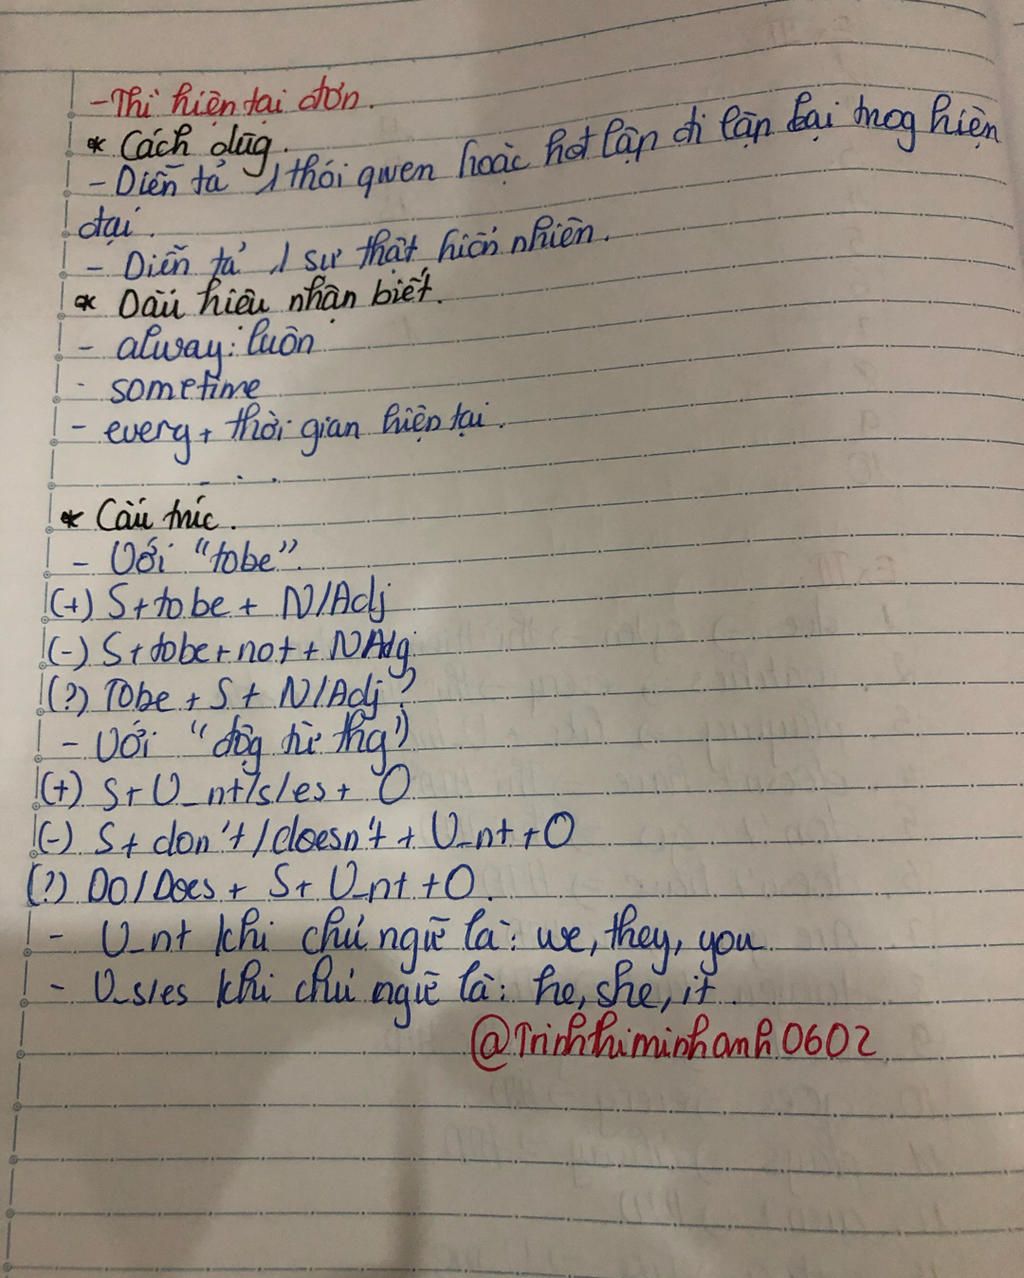 - Thì hiện tại đơn.
* Cách dùg.
- Diễn tả 1 thói quen hoặc hđ lặp đi lặp lại trog hiện
tại.
- Diễn tả 1 sự thật hiển nhiên.
* Dấu hiệu nhận biết.
- alway: luôn
- sometime
- every + thời gian hiện tại.
...
* Cấu trúc.
- Với "tobe".
(+) S + tobe + N/Adj
(-) S + tobe + not + N/Adj
(?) Tobe + S + N/Adj?
- Với "độg từ thg"
(+) S + V_nt/s/es + O
(-) S + don't/doesn't + V_nt + O
(?) Do/Does + S + V_nt + O.
- V_nt khi chủ ngữ là: we, they, you
- V_s/es khi chủ ngữ là: he, she, it.
@Trinhthiminhanh0602